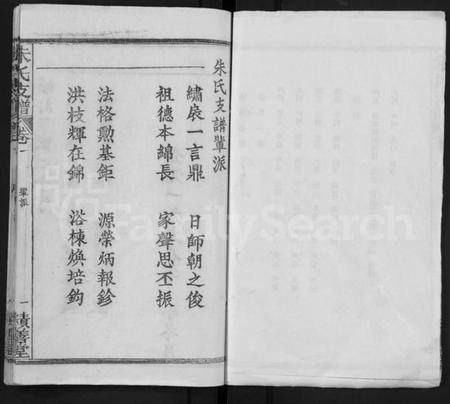 朱氏支譜輩派
繡扆一言鼎 日師朝之俊
祖德本綿長 家聲思丕振
法格勲基鉅 源榮炳報鉁
洪枝輝在錦 浴棟煥培鈞
朱氏支譜 卷一
輩派
一
積善堂
FamilySearch